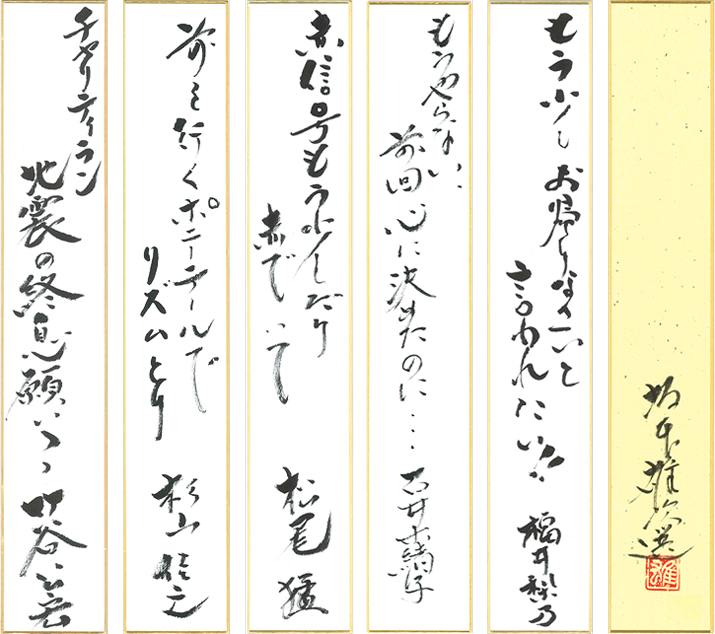 坂本雄次選
もう少しお帰りなさいと
言われたい!!
福井梨乃
もうやらない、
前回心に決めたのに…
石井
赤信号もう少しだけ
赤でいて
松尾猛
前を行くポニーテールで
リズムとり
杉山佳之
チャリティラン
地震の終息願いつつ